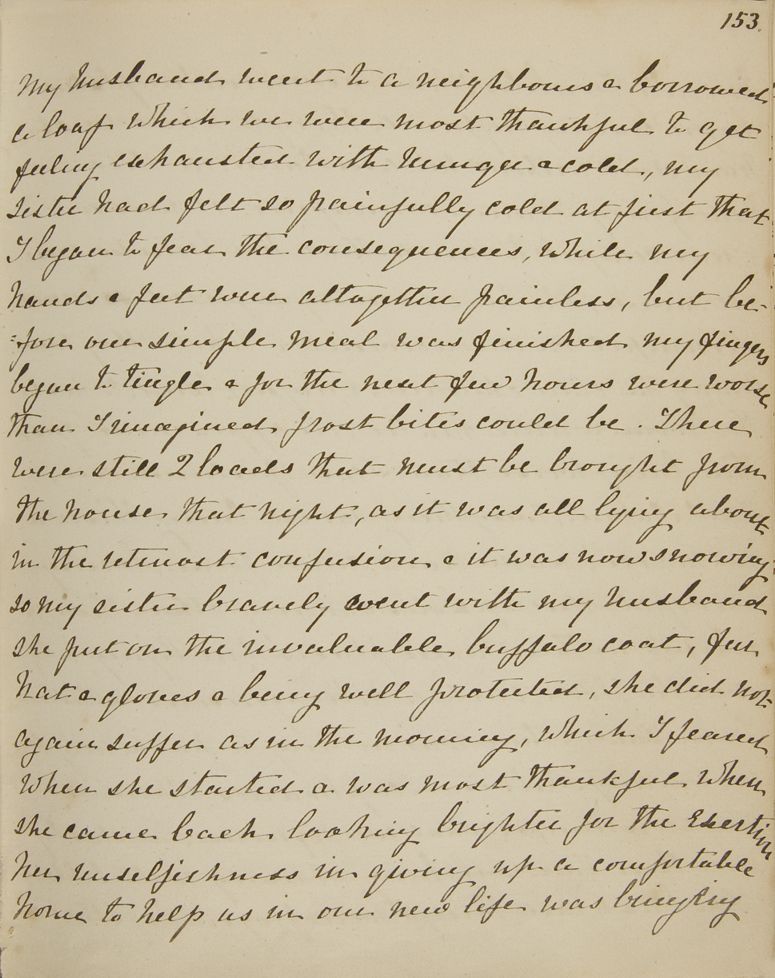 153.
My husband went to a neighbours & borrowed
a loaf which we were most thankful to get
feeling exhausted with hunger & cold, my
sister had felt so painfully cold at first that
I began to fear the consequences, while my
hands & feet were altogether painless, but be-
=fore our simple meal was finished my fingers
began to tingle & for the next few hours were worse
than I imagined frost bites could be. There
were still 2 loads that must be brought from
the house that night, as it was all lying about
in the utmost confusion & it was now snowing
so my sister bravely went with my husband
she put on the invaluable buffalo coat, fur
hat & gloves & being well protected, she did not
again suffer as in the morning, which I feared
when she started & was most thankful when
she came back looking brighter for the exertion
her unselfishness in giving up a comfortable
home to help us in our new life was bringing